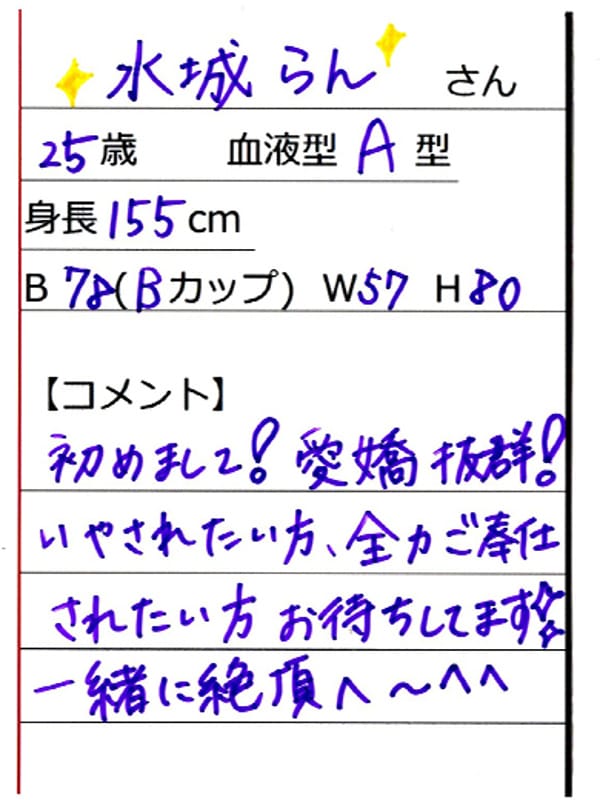 水城らん さん
25歳 血液型 A 型
身長 155 cm
B 78(Bカップ) W57 H80
【コメント】
初めまして!愛嬌抜群!
いやされたい方、全力ご奉仕
されたい方お待ちしてます
一緒に絶頂へ〜へへ